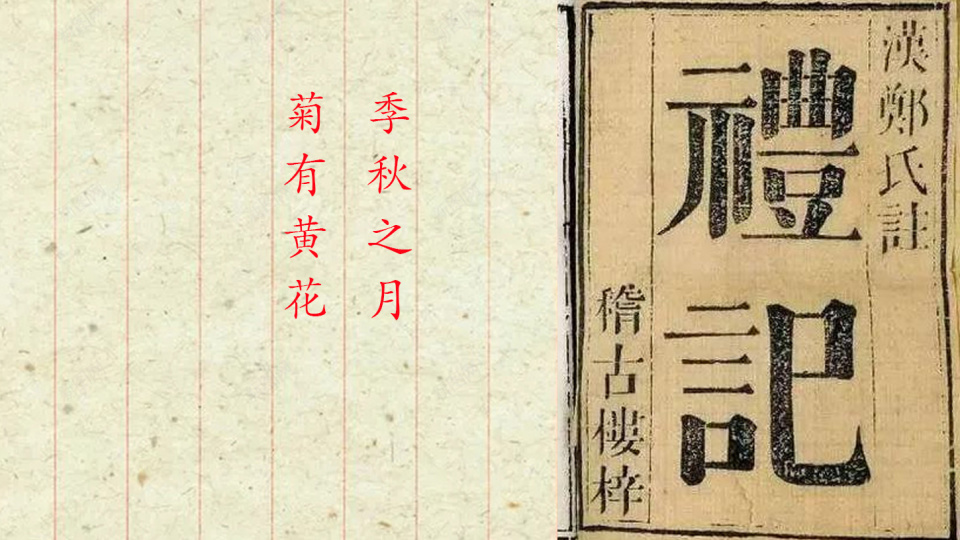 季秋之月
菊有黄花
漢鄭氏註
禮記
稽古樓梓